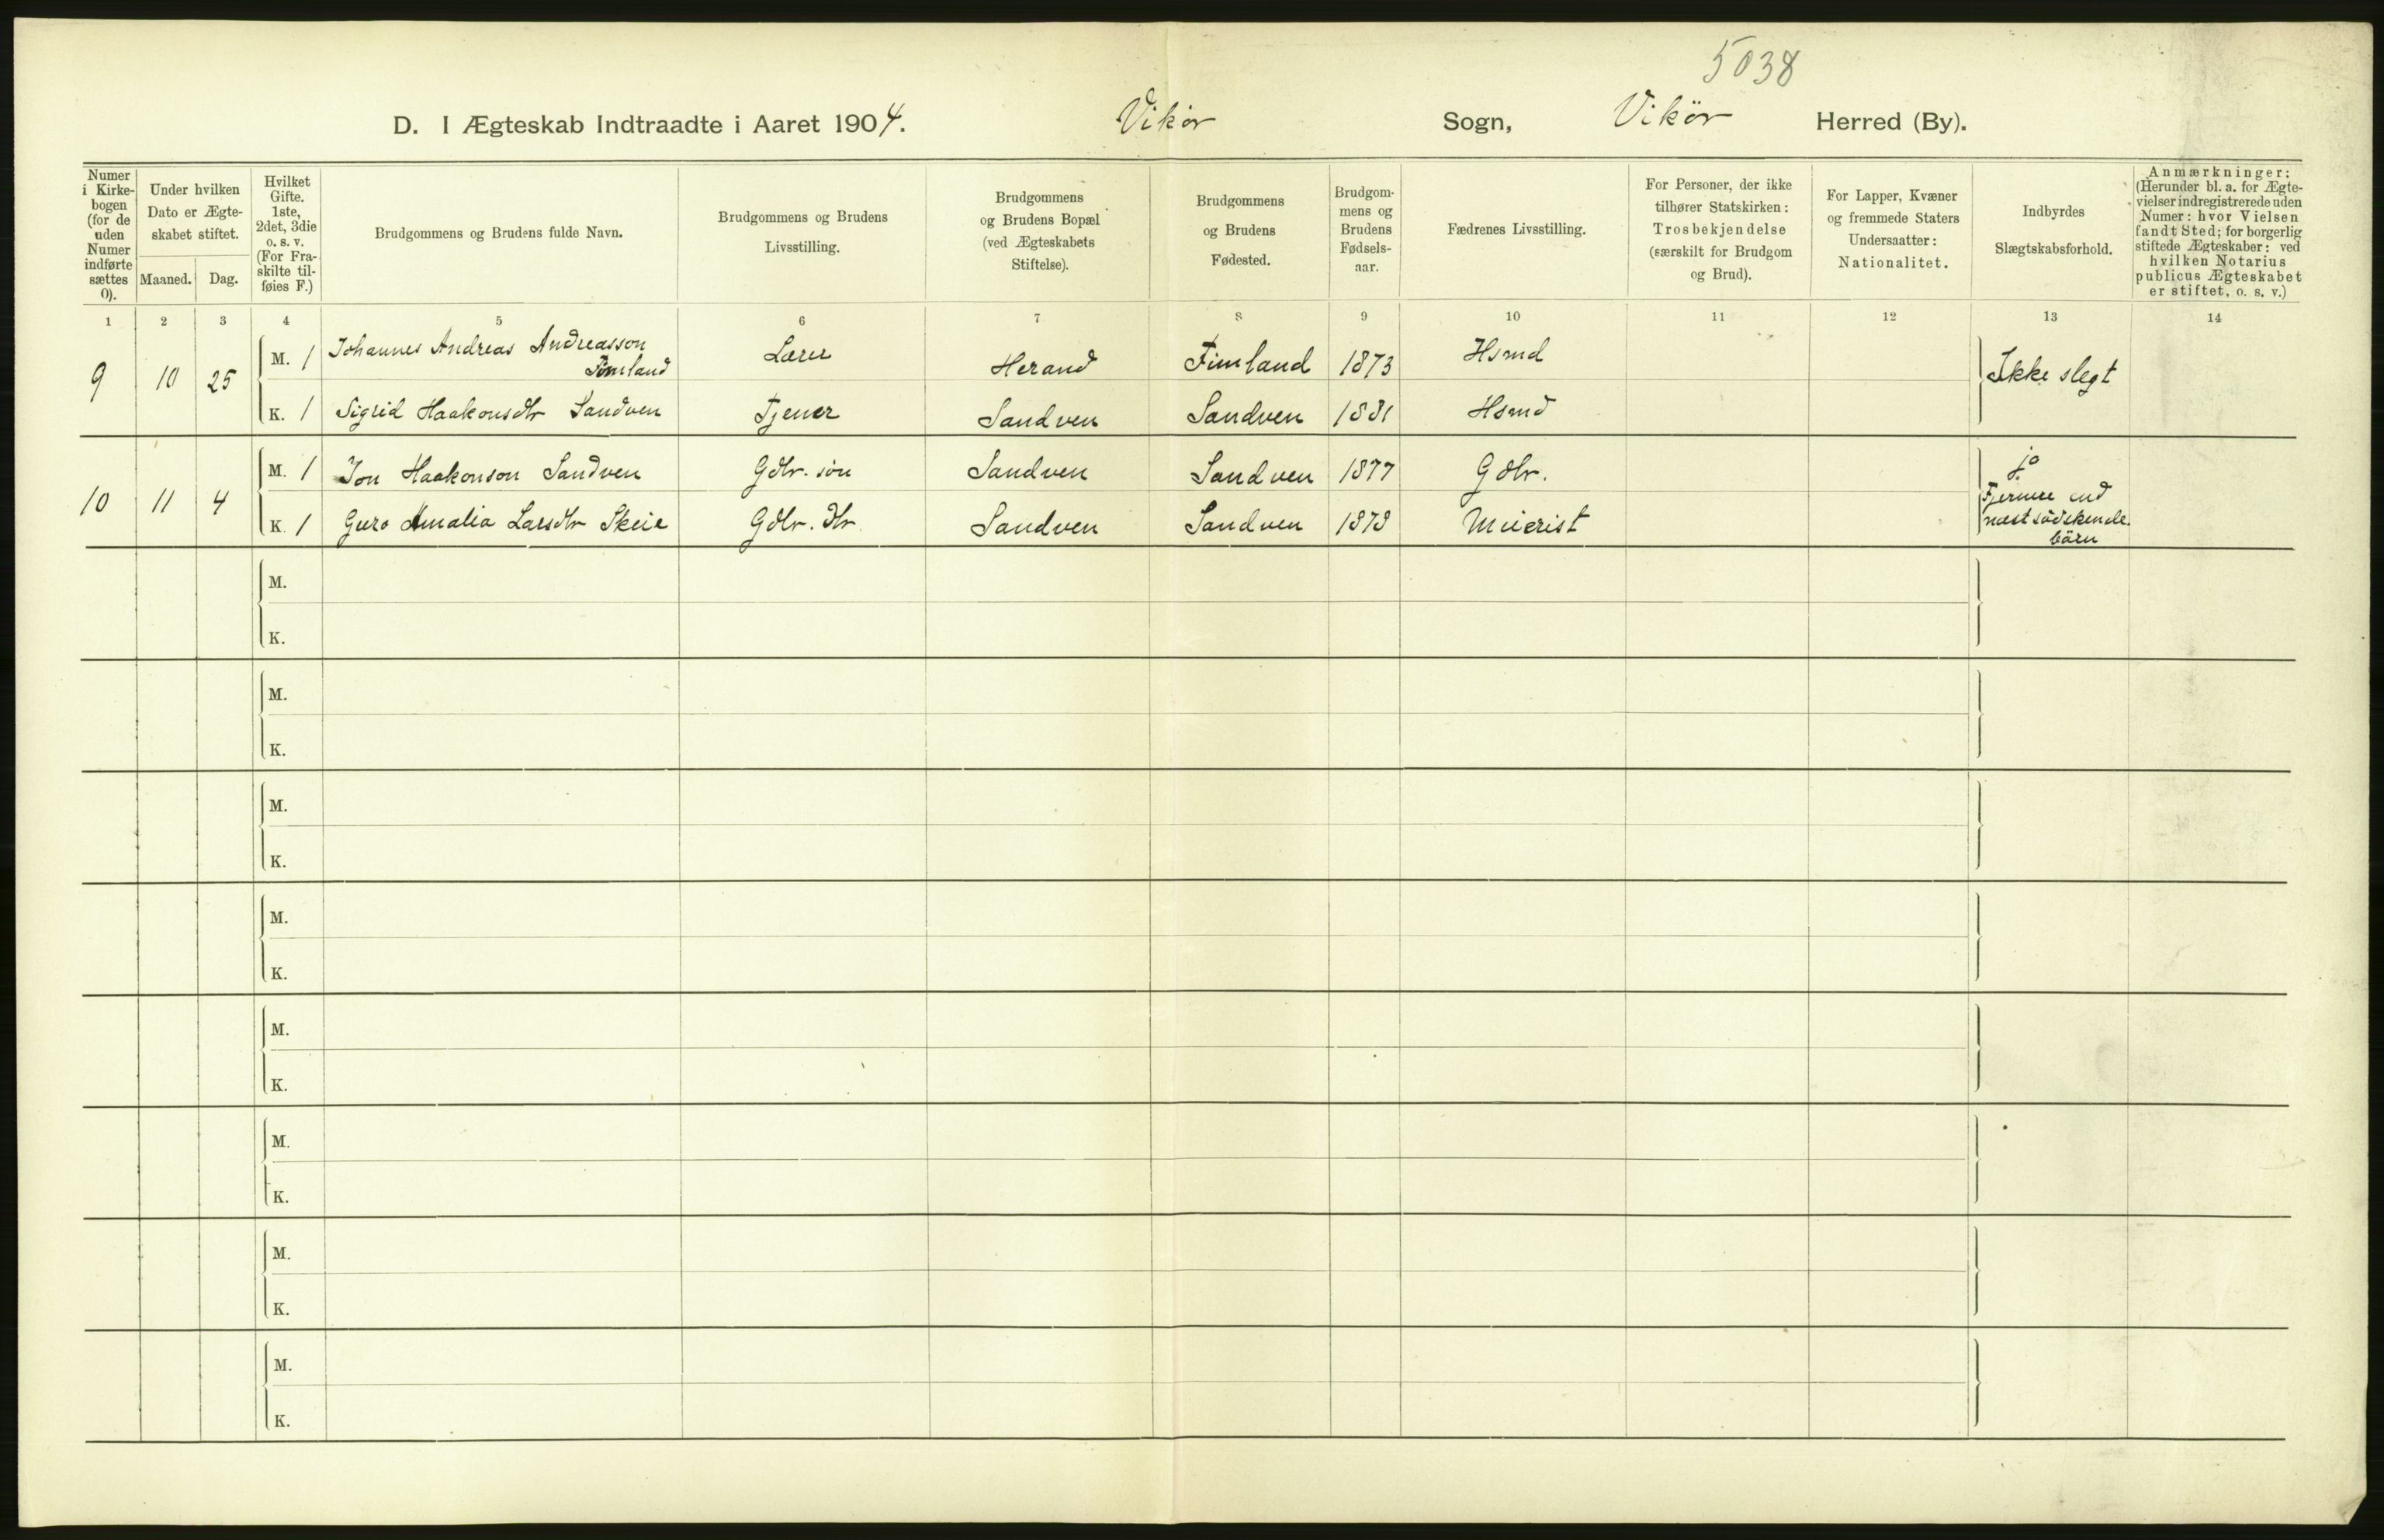 5038
D. I Ægteskab Indtraadte i Aaret 1904. Vikör Sogn, Vikör Herred (By).
Numer i Kirkebogen (for de uden Numer indførte sættes 0).
Under hvilken Dato er Ægteskabet stiftet.
Maaned. Dag.
Hvilket Gifte. 1ste, 2det, 3die o. s. v. (For Fraskilte tilføies F.)
Brudgommens og Brudens fulde Navn.
Brudgommens og Brudens Livsstilling.
Brudgommens og Brudens Bopæl (ved Ægteskabets Stiftelse).
Brudgommens og Brudens Fødested.
Brudgommens og Brudens Fødselsaar.
Fædrenes Livsstilling.
For Personer, der ikke tilhører Statskirken: Trosbekjendelse (særskilt for Brudgom og Brud).
For Lapper, Kvæner og fremmede Staters Undersaatter: Nationalitet.
Indbyrdes Slægtskabsforhold.
Anmærkninger: (Herunder bl. a. for Ægtevielser indregistrerede uden Numer: hvor Vielsen fandt Sted; for borgerlig stiftede Ægteskaber: ved hvilken Notarius publicus Ægteskabet er stiftet, o. s. v.)
1 2 3 4 5 6 7 8 9 10 11 12 13 14
9 10 25 M. 1 Johannes Andreas Andreasson Fimland Lærer Herand Fimland 1873 Hsmd Ikke slegt
K. 1 Sigrid Haakonsdtr Sandven Tjener Sandven Sandven 1881 Hsmd
10 11 4 M. 1 Jon Haakonson Sandven Gdbr. søn Sandven Sandven 1877 Gdbr. ja
Fjernere end
næstsödskende
börn
K. 1 Guro Amalia Larsdtr Skeie Gdbr. dtr. Sandven Sandven 1878 Meierist
M.
K.
M.
K.
M.
K.
M.
K.
M.
K.
M.
K.
M.
K.
M.
K.